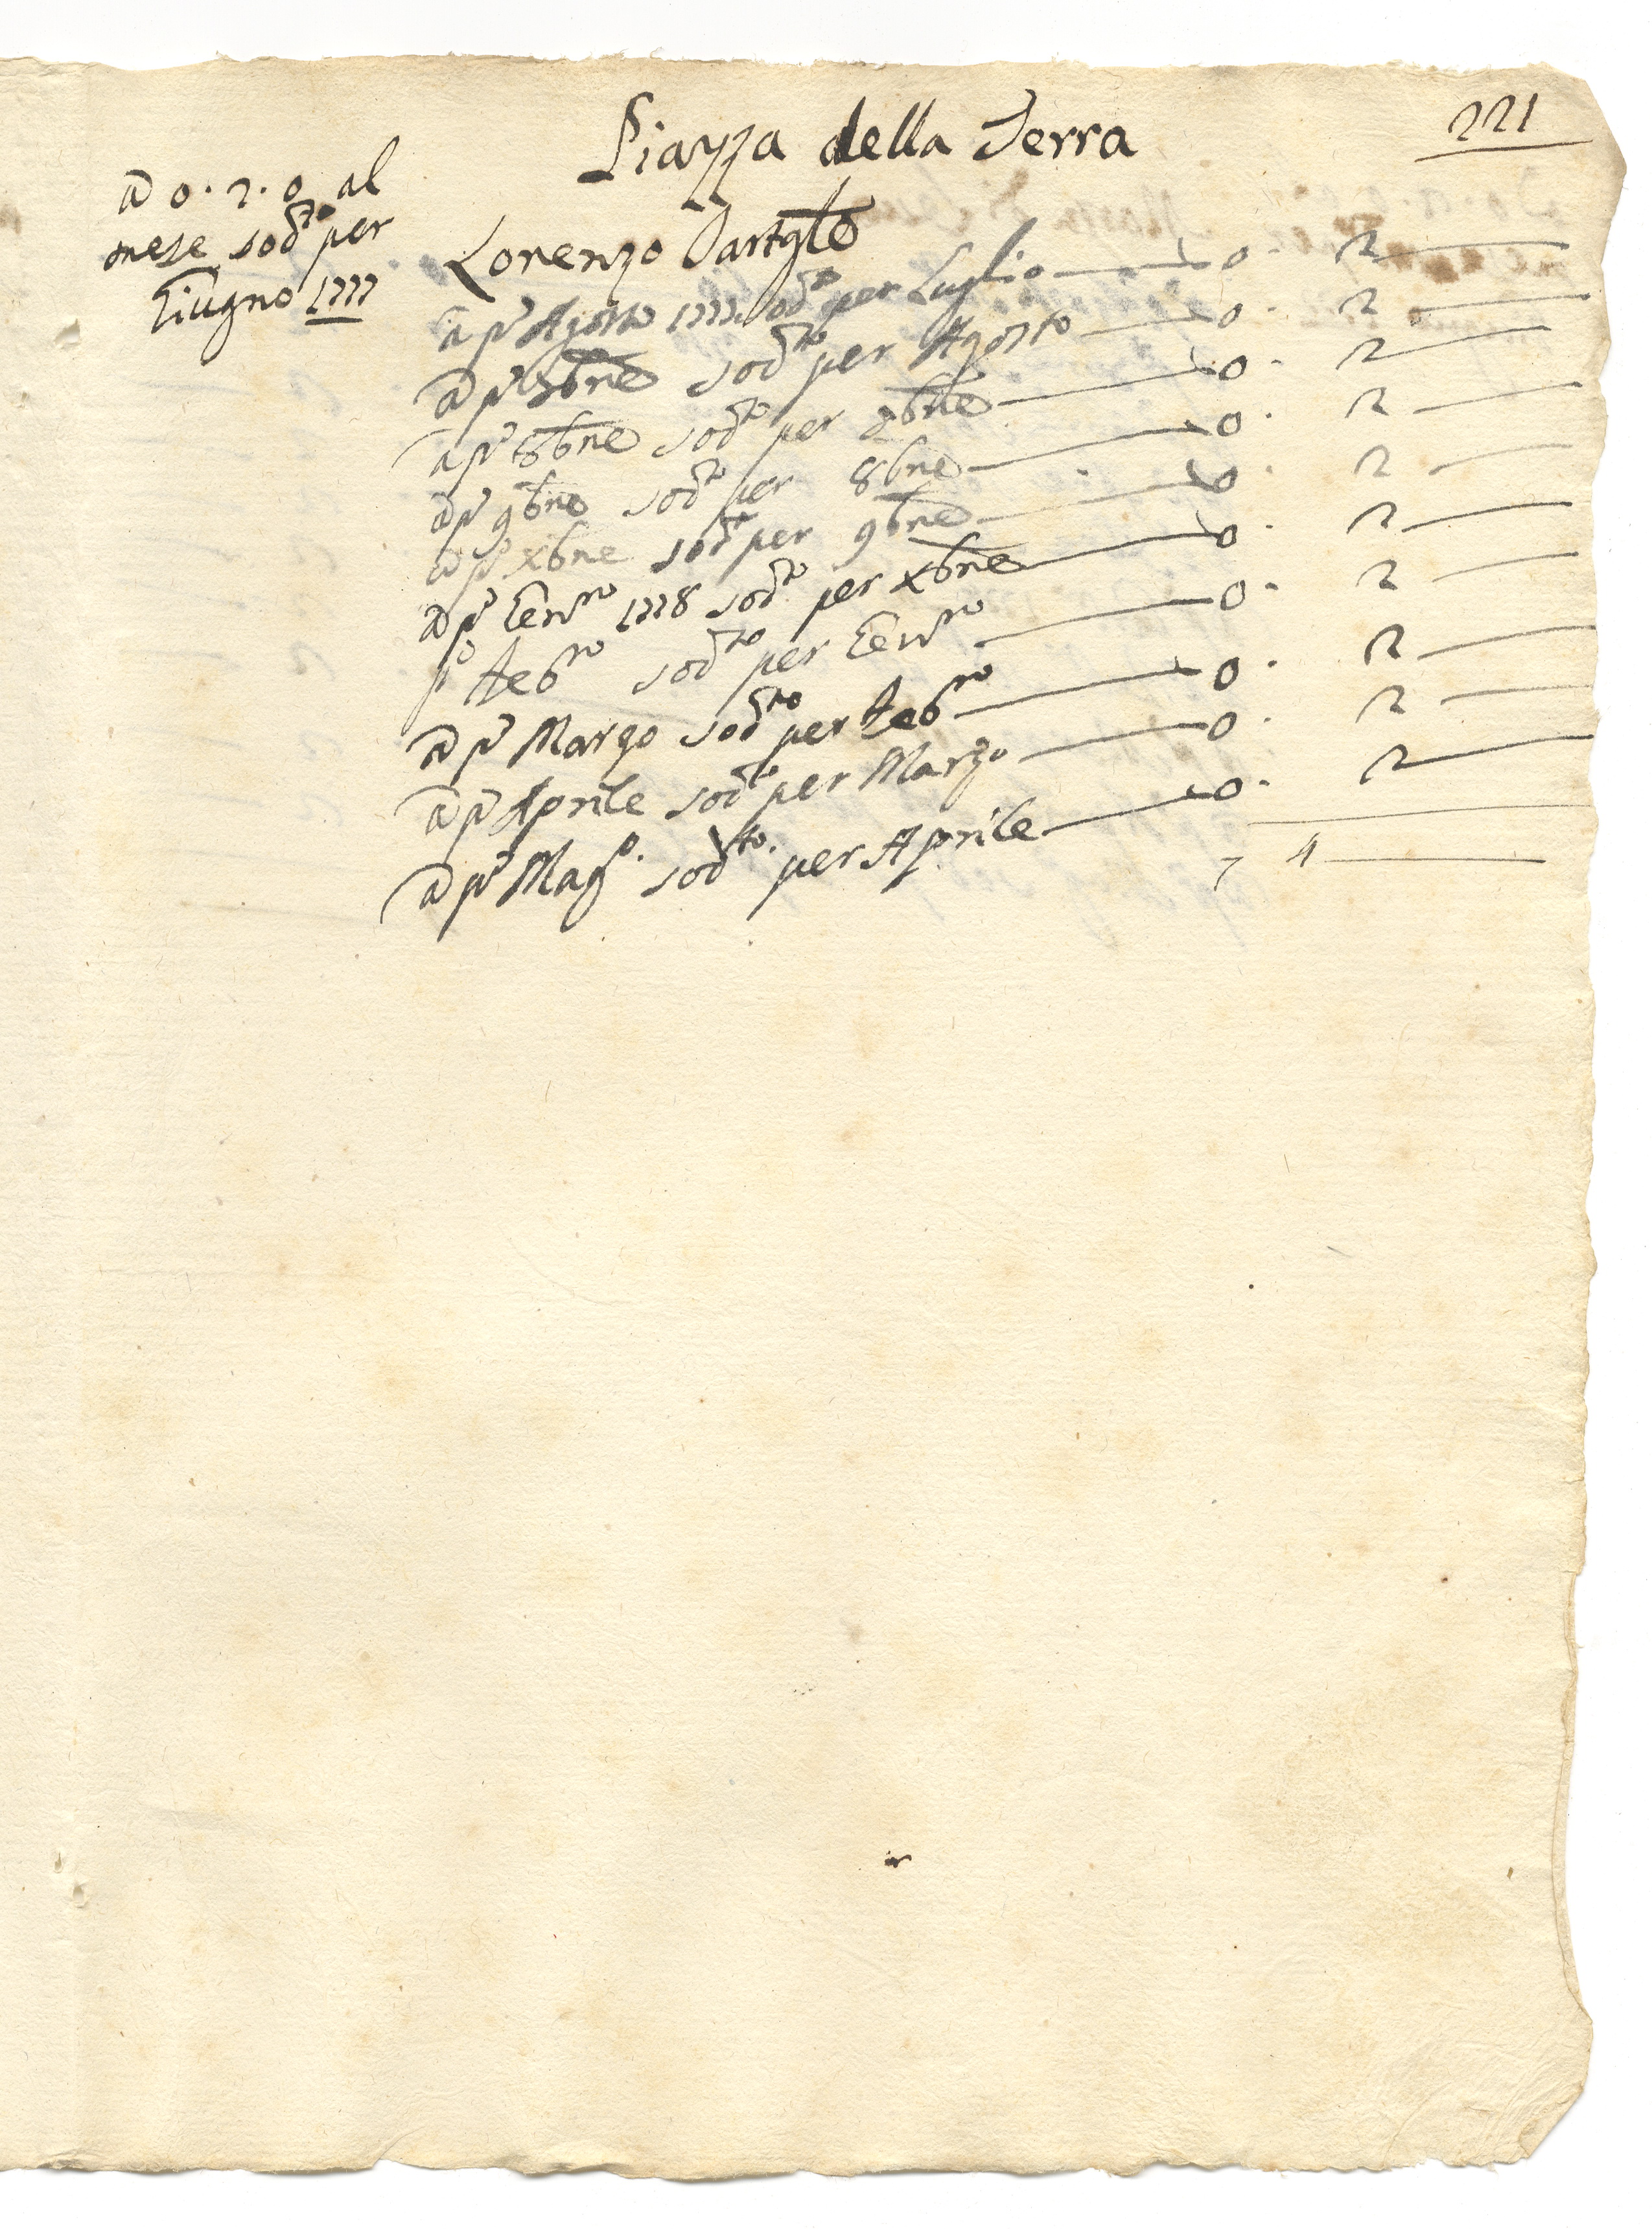 221
Piazza della Terra
a 0.2.0 al
mese sodto per
Giugno 1777
Lorenzo
a pº Agosto 1777 sodto per Luglio 0. 2
a pº 7bre sodto per Agosto 0. 2
a pº 8bre sodto per 7bre 0. 2
a pº 9bre sodto per 8bre 0. 2
a pº xbre sodto per 9bre 0. 2
a pº Genro 1778 sodto per xbre 0. 2
pº Febro sodto per Genro 0. 2
a pº Marzo sodto per Febro 0. 2
a pº Aprile sodto per Marzo 0. 2
a pº Magº. sodto. per Aprile 0. 2
4